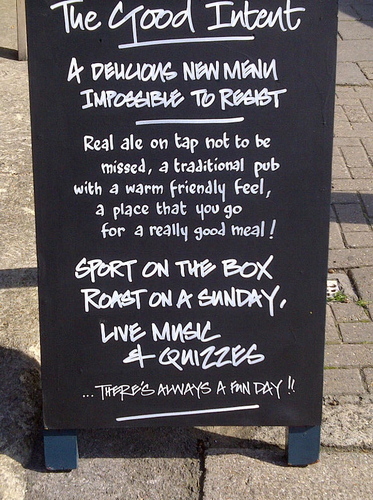 The Good Intent
A DELICIOUS NEW MENU
IMPOSSIBLE TO RESIST
Real ale on tap not to be
missed, a traditional pub
with a warm friendly feel,
a place that you go
for a really good meal!
SPORT ON THE BOX
ROAST ON A SUNDAY.
LIVE MUSIC
& QUIZZES
...THERE'S ALWAYS A FUN DAY!!